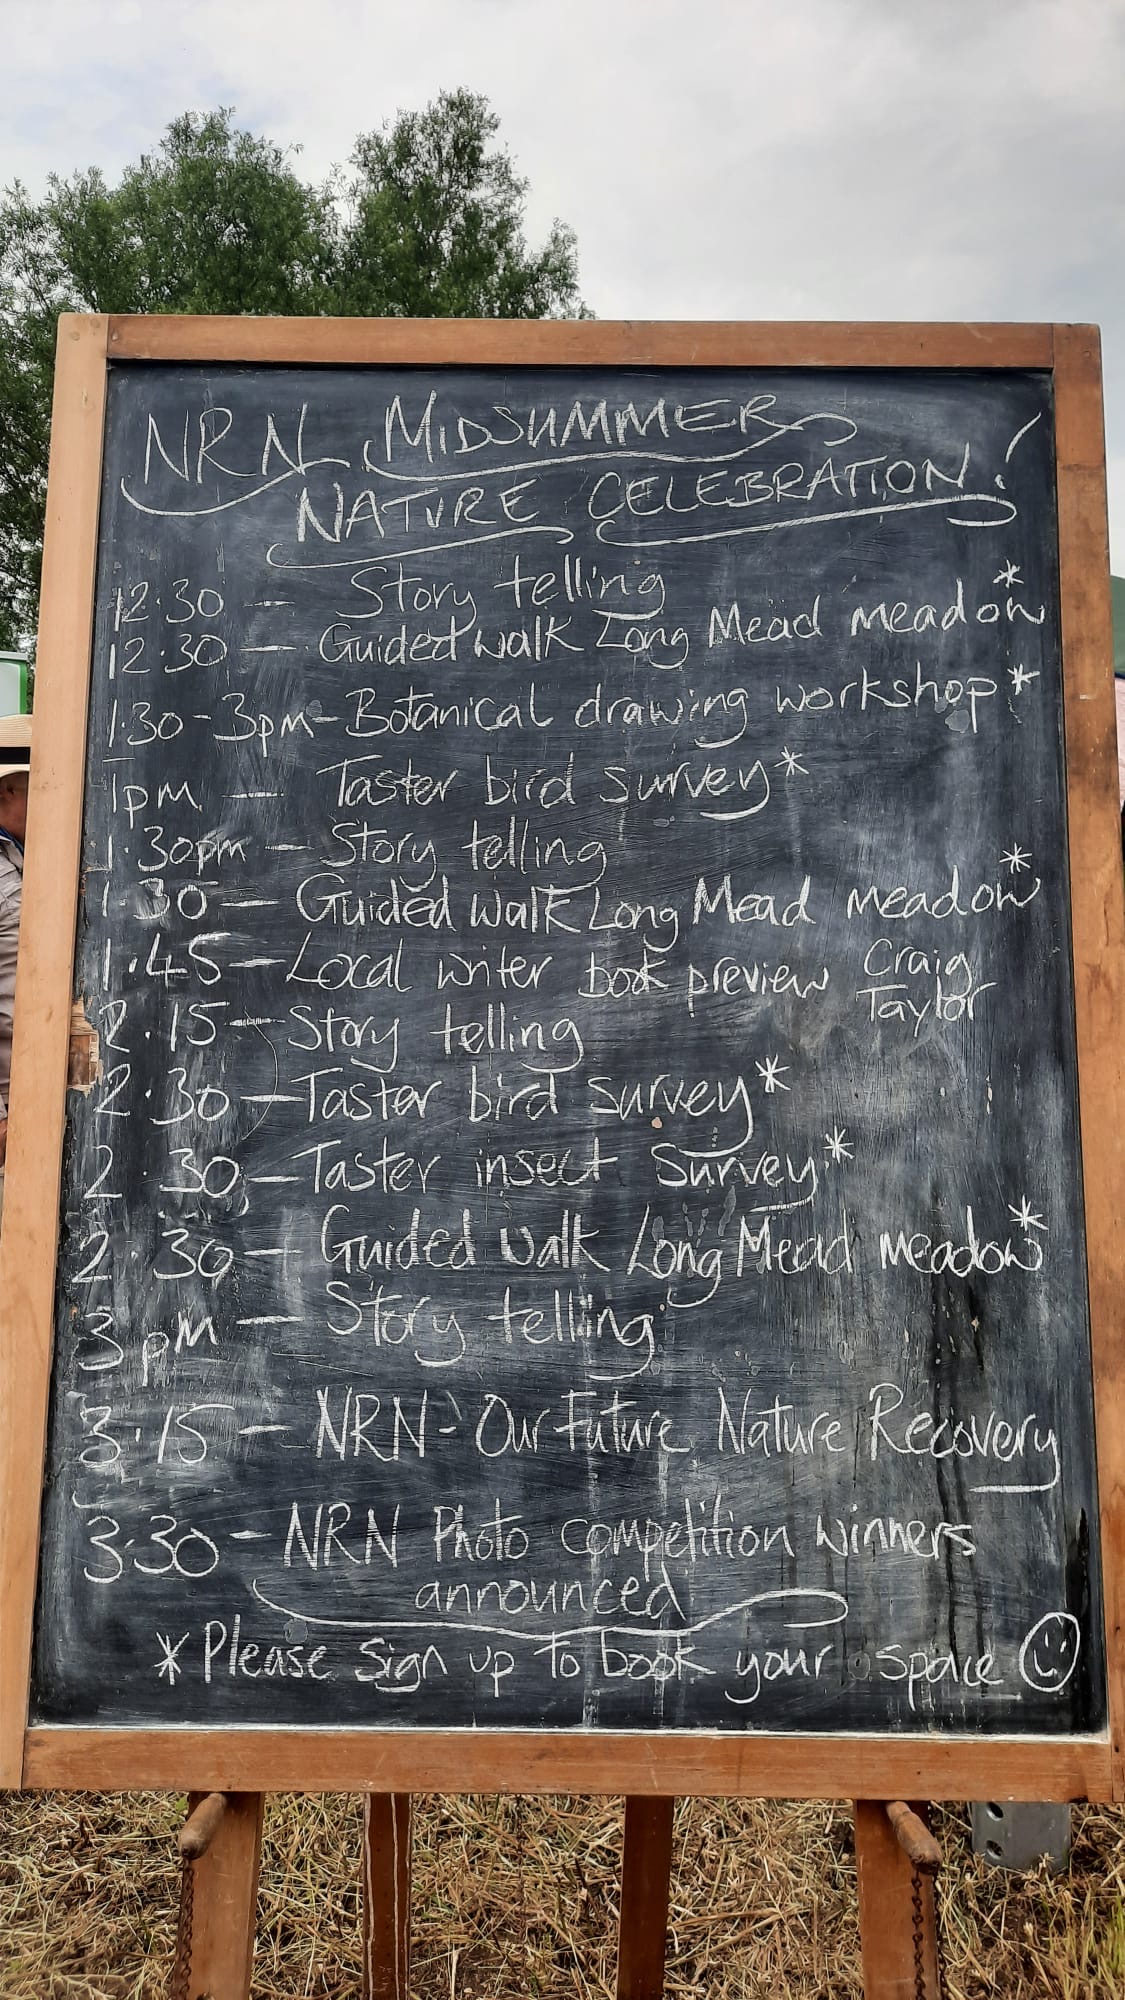 NRN MIDSUMMER
NATURE CELEBRATION!
12.30 - Story telling
12.30 - Guided walk Long Mead meadow*
1.30 - 3pm - Botanical drawing workshop*
1pm - Taster bird survey*
1.30pm - Story telling
1.30 - Guided walk Long Mead meadow*
1.45 - Local writer book preview Craig
Taylor
2.15 - Story telling
2.30 - Taster bird survey*
2.30 - Taster insect survey*
2.30 - Guided walk Long Mead meadow*
3pm - Story telling
3.15 - NRN - Our Future Nature Recovery
3.30 - NRN Photo competition winners
announced
* Please sign up to book your space ☺